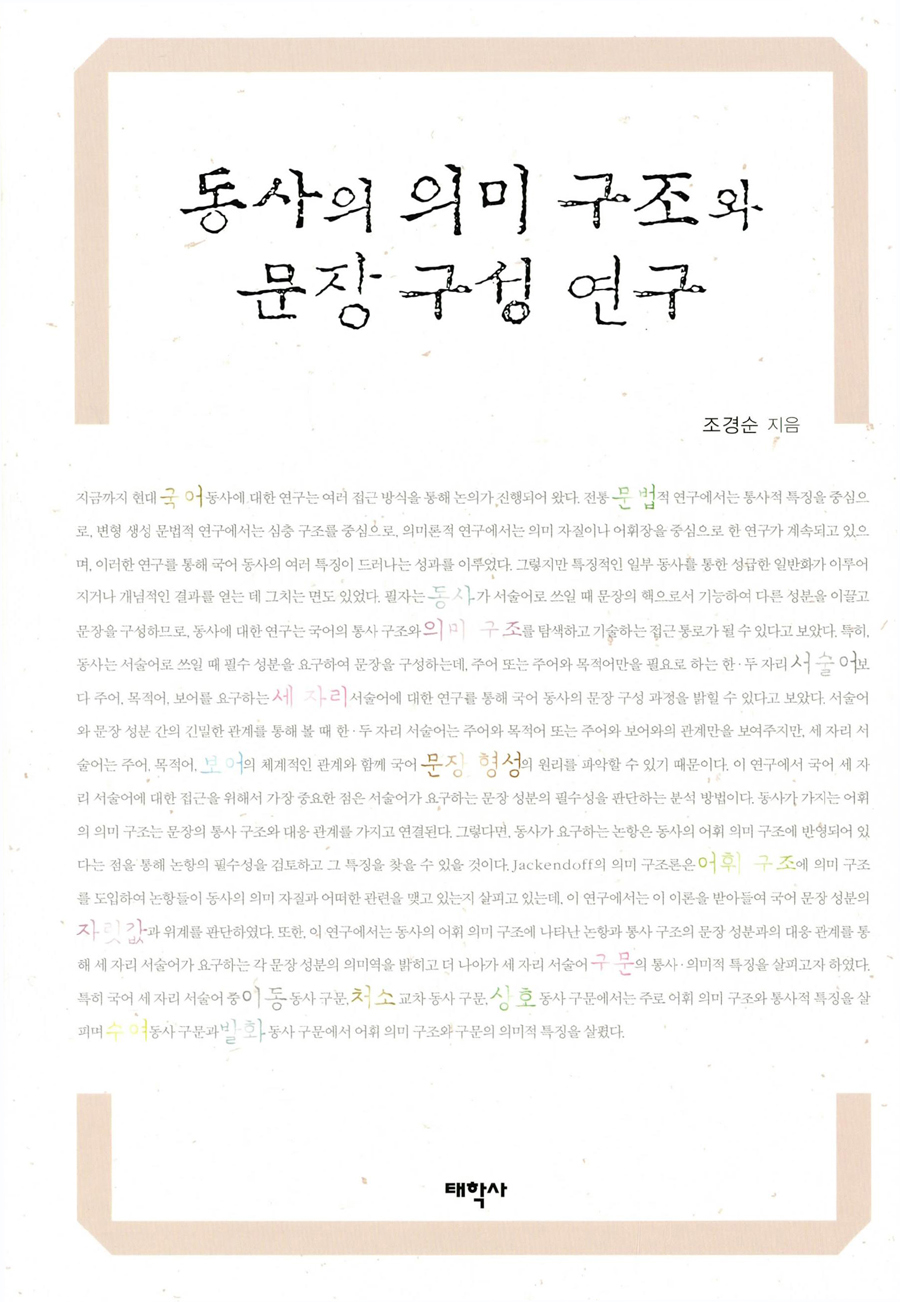 동사의 의미 구조와
문장 구성 연구
조경순 지음
지금까지 현대 국어 동사에 대한 연구는 여러 접근 방식을 통해 논의가 진행되어 왔다. 전통 문법적 연구에서는 통사적 특징을 중심으
로, 변형 생성 문법적 연구에서는 심층 구조를 중심으로, 의미론적 연구에서는 의미 자질이나 어휘장을 중심으로 한 연구가 계속되고 있으
며, 이러한 연구를 통해 국어 동사의 여러 특징이 드러나는 성과를 이루었다. 그렇지만 특징적인 일부 동사를 통한 성급한 일반화가 이루어
지거나 개념적인 결과를 얻는 데 그치는 면도 있었다. 필자는 동사가 서술어로 쓰일 때 문장의 핵으로서 기능하여 다른 성분을 이끌고
문장을 구성하므로, 동사에 대한 연구는 국어의 통사 구조와 의미 구조를 탐색하고 기술하는 접근 통로가 될 수 있다고 보았다. 특히,
동사는 서술어로 쓰일 때 필수 성분을 요구하여 문장을 구성하는데, 주어 또는 주어와 목적어만을 필요로 하는 한·두 자리 서술어보
다 주어, 목적어, 보어를 요구하는 세 자리 서술어에 대한 연구를 통해 국어 동사의 문장 구성 과정을 밝힐 수 있다고 보았다. 서술어
와 문장 성분 간의 긴밀한 관계를 통해 볼 때 한·두 자리 서술어는 주어와 목적어 또는 주어와 보어와의 관계만을 보여주지만, 세 자리 서
술어는 주어, 목적어, 보어의 체계적인 관계와 함께 국어 문장 형성의 원리를 파악할 수 있기 때문이다. 이 연구에서 국어 세 자
리 서술어에 대한 접근을 위해서 가장 중요한 점은 서술어가 요구하는 문장 성분의 필수성을 판단하는 분석 방법이다. 동사가 가지는 어휘
의 의미 구조는 문장의 통사 구조와 대응 관계를 가지고 연결된다. 그렇다면, 동사가 요구하는 논항은 동사의 어휘 의미 구조에 반영되어 있
다는 점을 통해 논항의 필수성을 검토하고 그 특징을 찾을 수 있을 것이다. Jackendoff의 의미 구조론은 어휘 구조에 의미 구조
를 도입하여 논항들이 동사의 의미 자질과 어떠한 관련을 맺고 있는지 살피고 있는데, 이 연구에서는 이 이론을 받아들여 국어 문장 성분의
자릿값과 위계를 판단하였다. 또한, 이 연구에서는 동사의 어휘 의미 구조에 나타난 논항과 통사 구조의 문장 성분과의 대응 관계를 통
해 세 자리 서술어가 요구하는 각 문장 성분의 의미역을 밝히고 더 나아가 세 자리 서술어 구문의 통사·의미적 특징을 살피고자 하였다.
특히 국어 세 자리 서술어 중 이동 동사 구문, 처소 교차 동사 구문, 상호 동사 구문에서는 주로 어휘 의미 구조와 통사적 특징을 살
피며 수여 동사 구문과 발화 동사 구문에서 어휘 의미 구조와 구문의 의미적 특징을 살폈다.
태학사